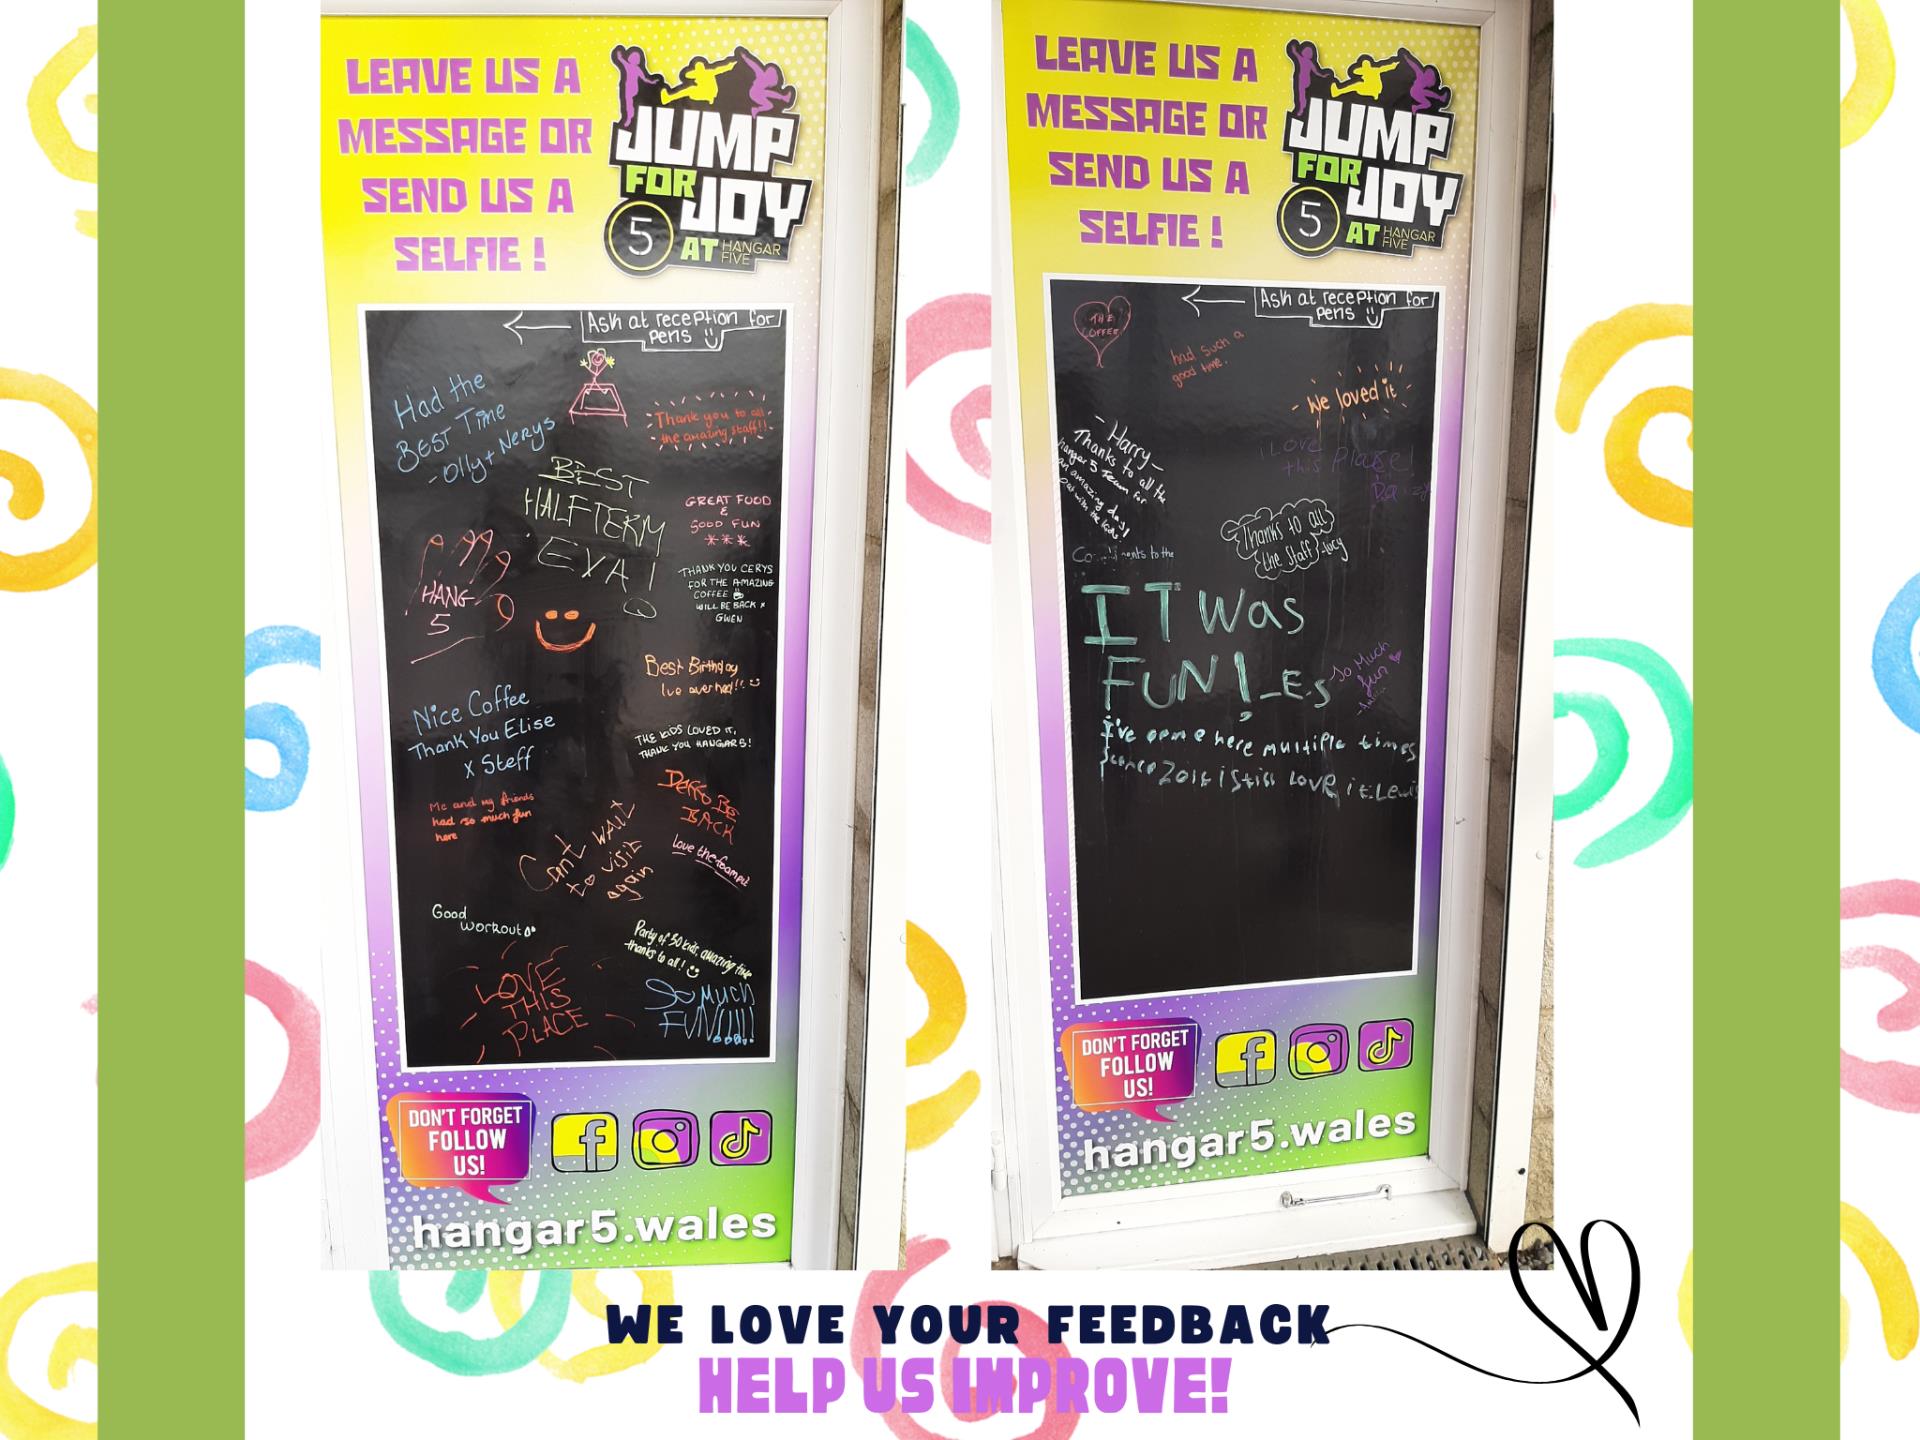 LEAVE US A
MESSAGE OR
SEND US A
SELFIE !
JUMP
FOR JOY
5 AT HANGAR
FIVE
Ask at reception for
Pens
Had the
BEST Time
- Olly + Nerys
Thank you to all
the amazing staff!!
BEST
HALF TERM
EVA!
GREAT FOOD
&
GOOD FUN
***
HANG
5
THANK YOU CERYS
FOR THE AMAZING
COFFEE
WILL BE BACK x
GWEN
Best Birthday
Ive ever had!!
Nice Coffee
Thank You Elise
x Steff
THE KIDS LOVED IT,
THANK YOU HANGAR 5!
Me and my friends
had so much fun
here
Deffo BE
BACK
Cant WAIT
to visit
again
Love the foampit
Good
workout
Party of 30 kids, amazing time
thanks to all!
LOVE
THIS
PLACE
So MUCH
FUN!!!!
DON'T FORGET
FOLLOW
US!
hangar5.wales
LEAVE US A
MESSAGE OR
SEND US A
SELFIE !
JUMP
FOR JOY
5 AT HANGAR
FIVE
Ask at reception for
Pens
THE
COFFEE
had such a
good time.
- We loved it
- Harry -
Thanks to all the
hangar 5 Team for
an amazing day
out with the kids!
I Love
this Place!
Daizy
Thanks to all
the Staff - Lucy
to the
IT Was
FUN! - Es
So Much
fun
I've come here multiple times
I Still Love it
DON'T FORGET
FOLLOW
US!
hangar5.wales
WE LOVE YOUR FEEDBACK
HELP US IMPROVE!